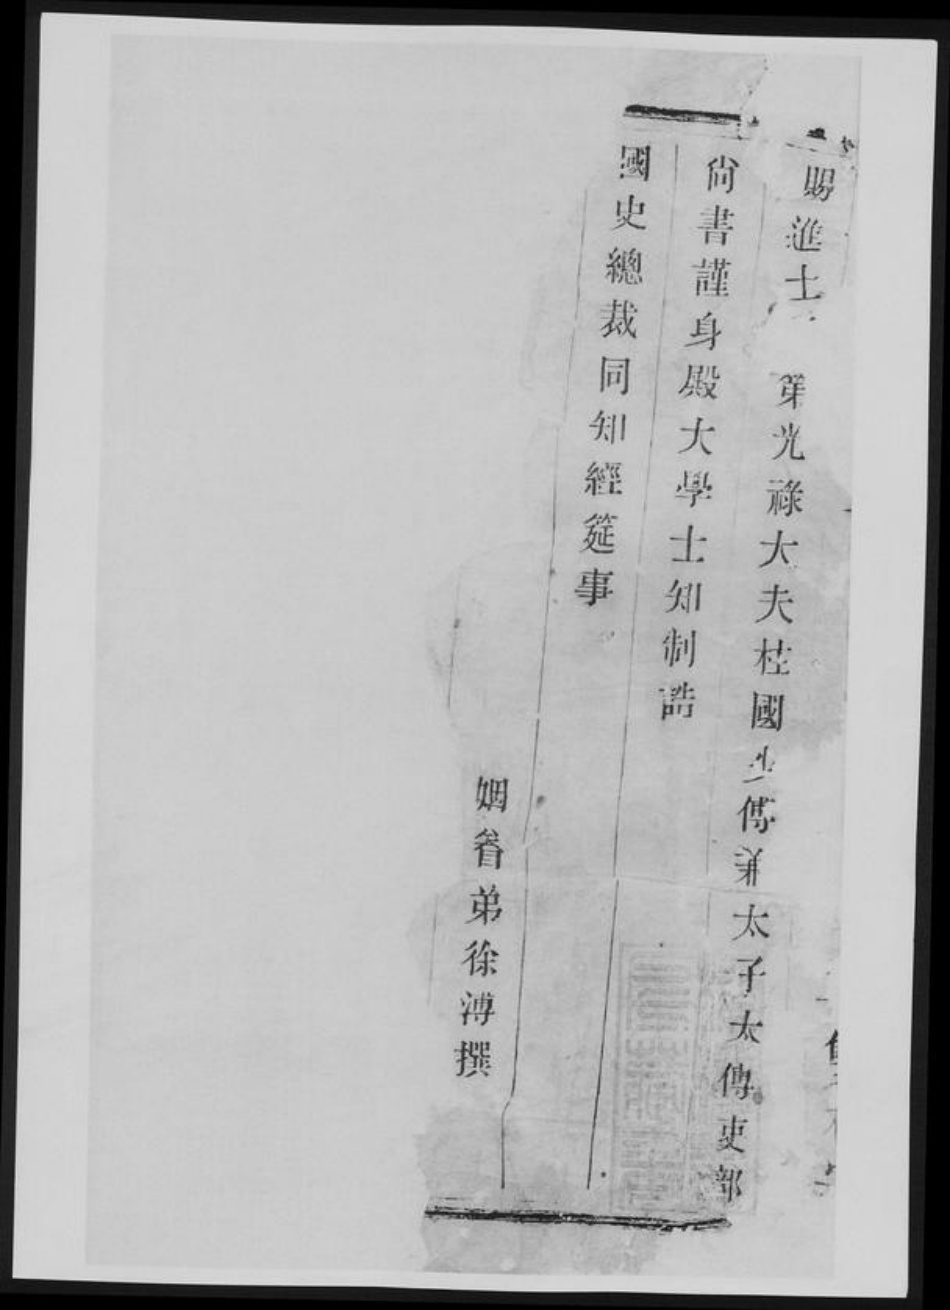 賜進士 第光祿大夫柱國少傅兼太子太傅吏部
尚書謹身殿大學士知制誥
國史總裁同知經筵事
姻眷弟徐溥撰